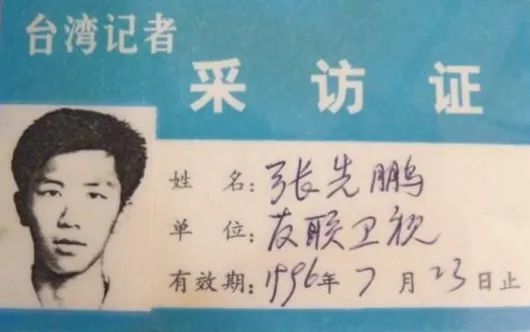 台湾记者
采访证
姓 名：张先鹏
单 位：友联卫视
有效期：1996年7月23日止